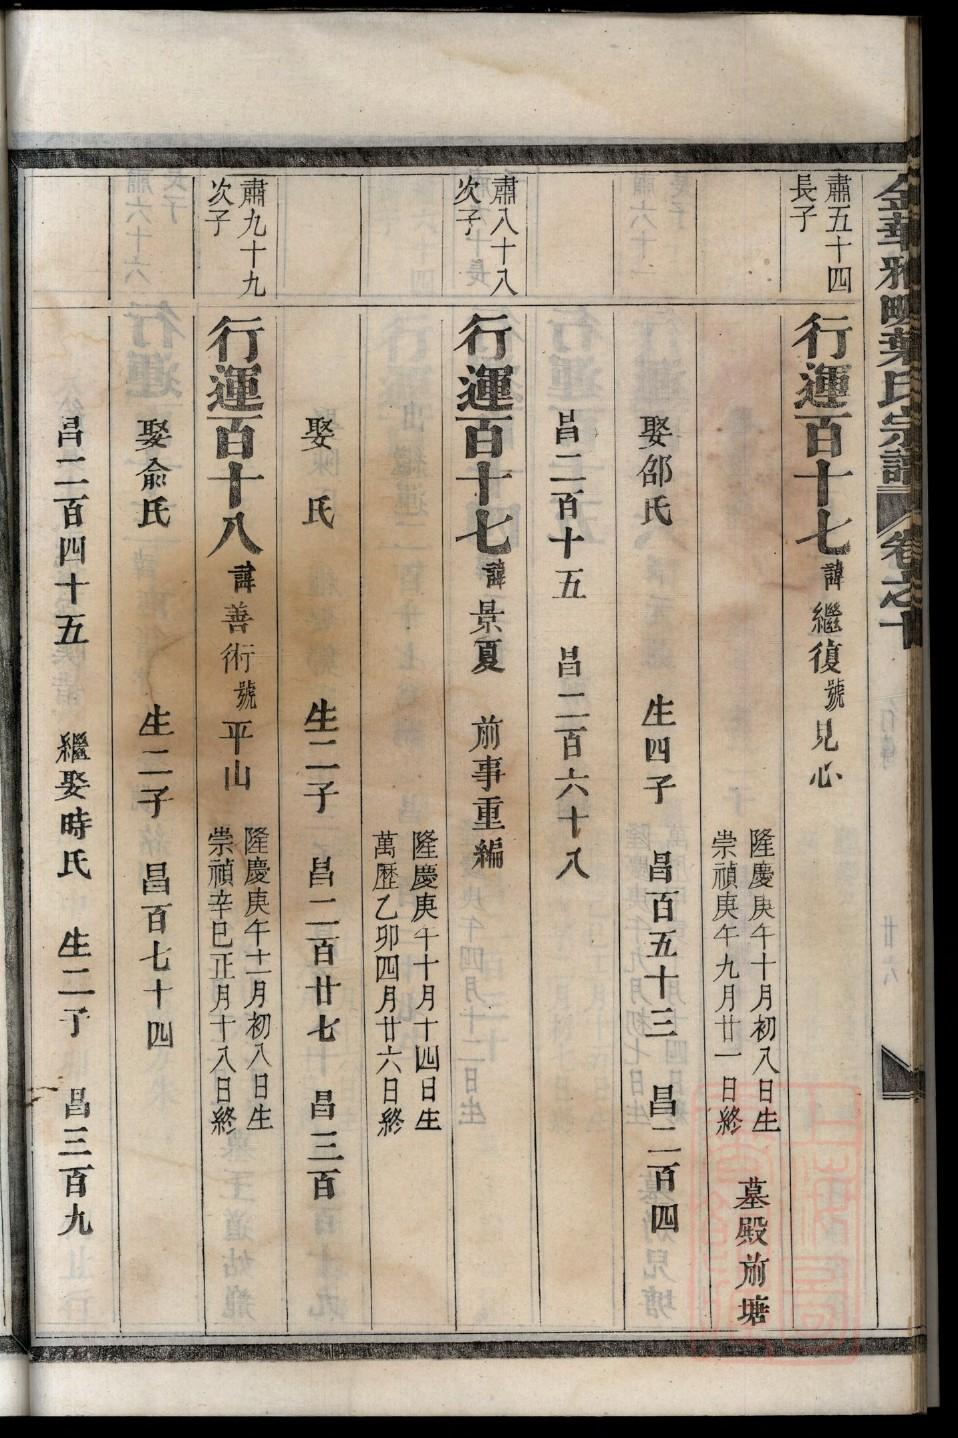 金華雅畈葉氏宗譜 卷之十
肅五十四
長子
行運百十七諱繼復號見心
隆慶庚午十月初八日生
崇禎庚午九月廿一日終
墓殿前塘
娶邵氏 生四子 昌百五十三 昌二百四
昌二百十五 昌二百六十八
肅八十八
次子
行運百十七諱景夏 前事重編
隆慶庚午十月十四日生
萬歷乙卯四月廿六日終
娶 氏 生二子 昌二百廿七 昌三百
肅九十九
次子
行運百十八諱善術號平山
隆慶庚午十二月初八日生
崇禎辛巳正月十八日終
娶俞氏 生二子 昌百七十四
昌二百四十五 繼娶時氏 生二子 昌三百九